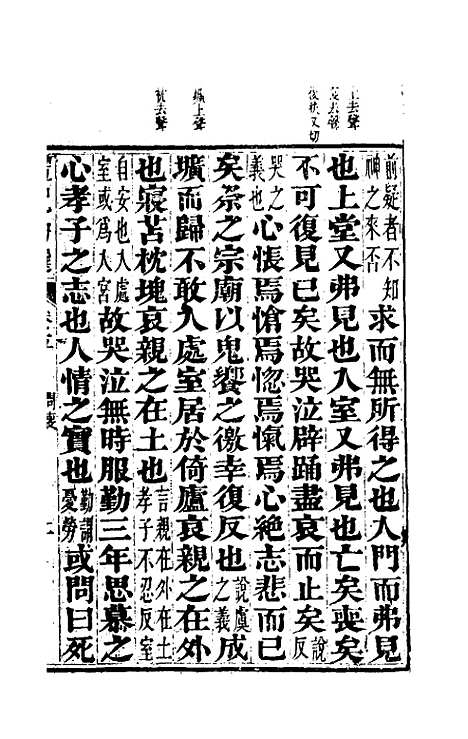 上去聲
喪去聲
復扶又切
壙上聲
枕去聲
前疑者不知
神之來否
求而無所得之也入門而弗見
也上堂又弗見也入室又弗見也亡矣喪矣
不可復見已矣故哭泣辟踊盡哀而止矣說反
哭之義也
心悵焉愴焉惚焉愾焉心絕志悲而已
矣祭之宗廟以鬼饗之徼幸復反也說虞之義
成壙而歸不敢入處室居於倚廬哀親之在外
也寢苫枕塊哀親之在土也言親在外在土孝子不忍反室
自安也入處室或為入宮
故哭泣無時服勤三年思慕之
心孝子之志也人情之實也勤謂憂勞
或問曰死
問喪